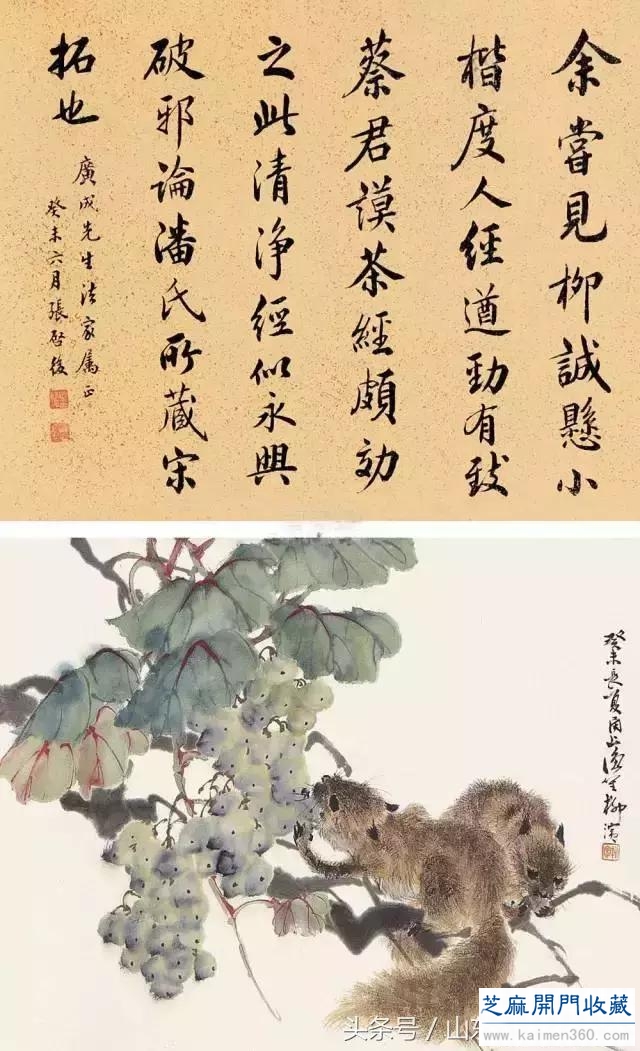 余嘗見柳誠懸小
楷度人經遒勁有致
蔡君謨茶經頗効
之此清净經似永興
破邪論潘氏所藏宋
拓也
廣成先生法家屬正
癸未六月張啓後
癸未長夏 柳濱
头条号 / 山东
芝麻開門收藏
www.kaimen360.com